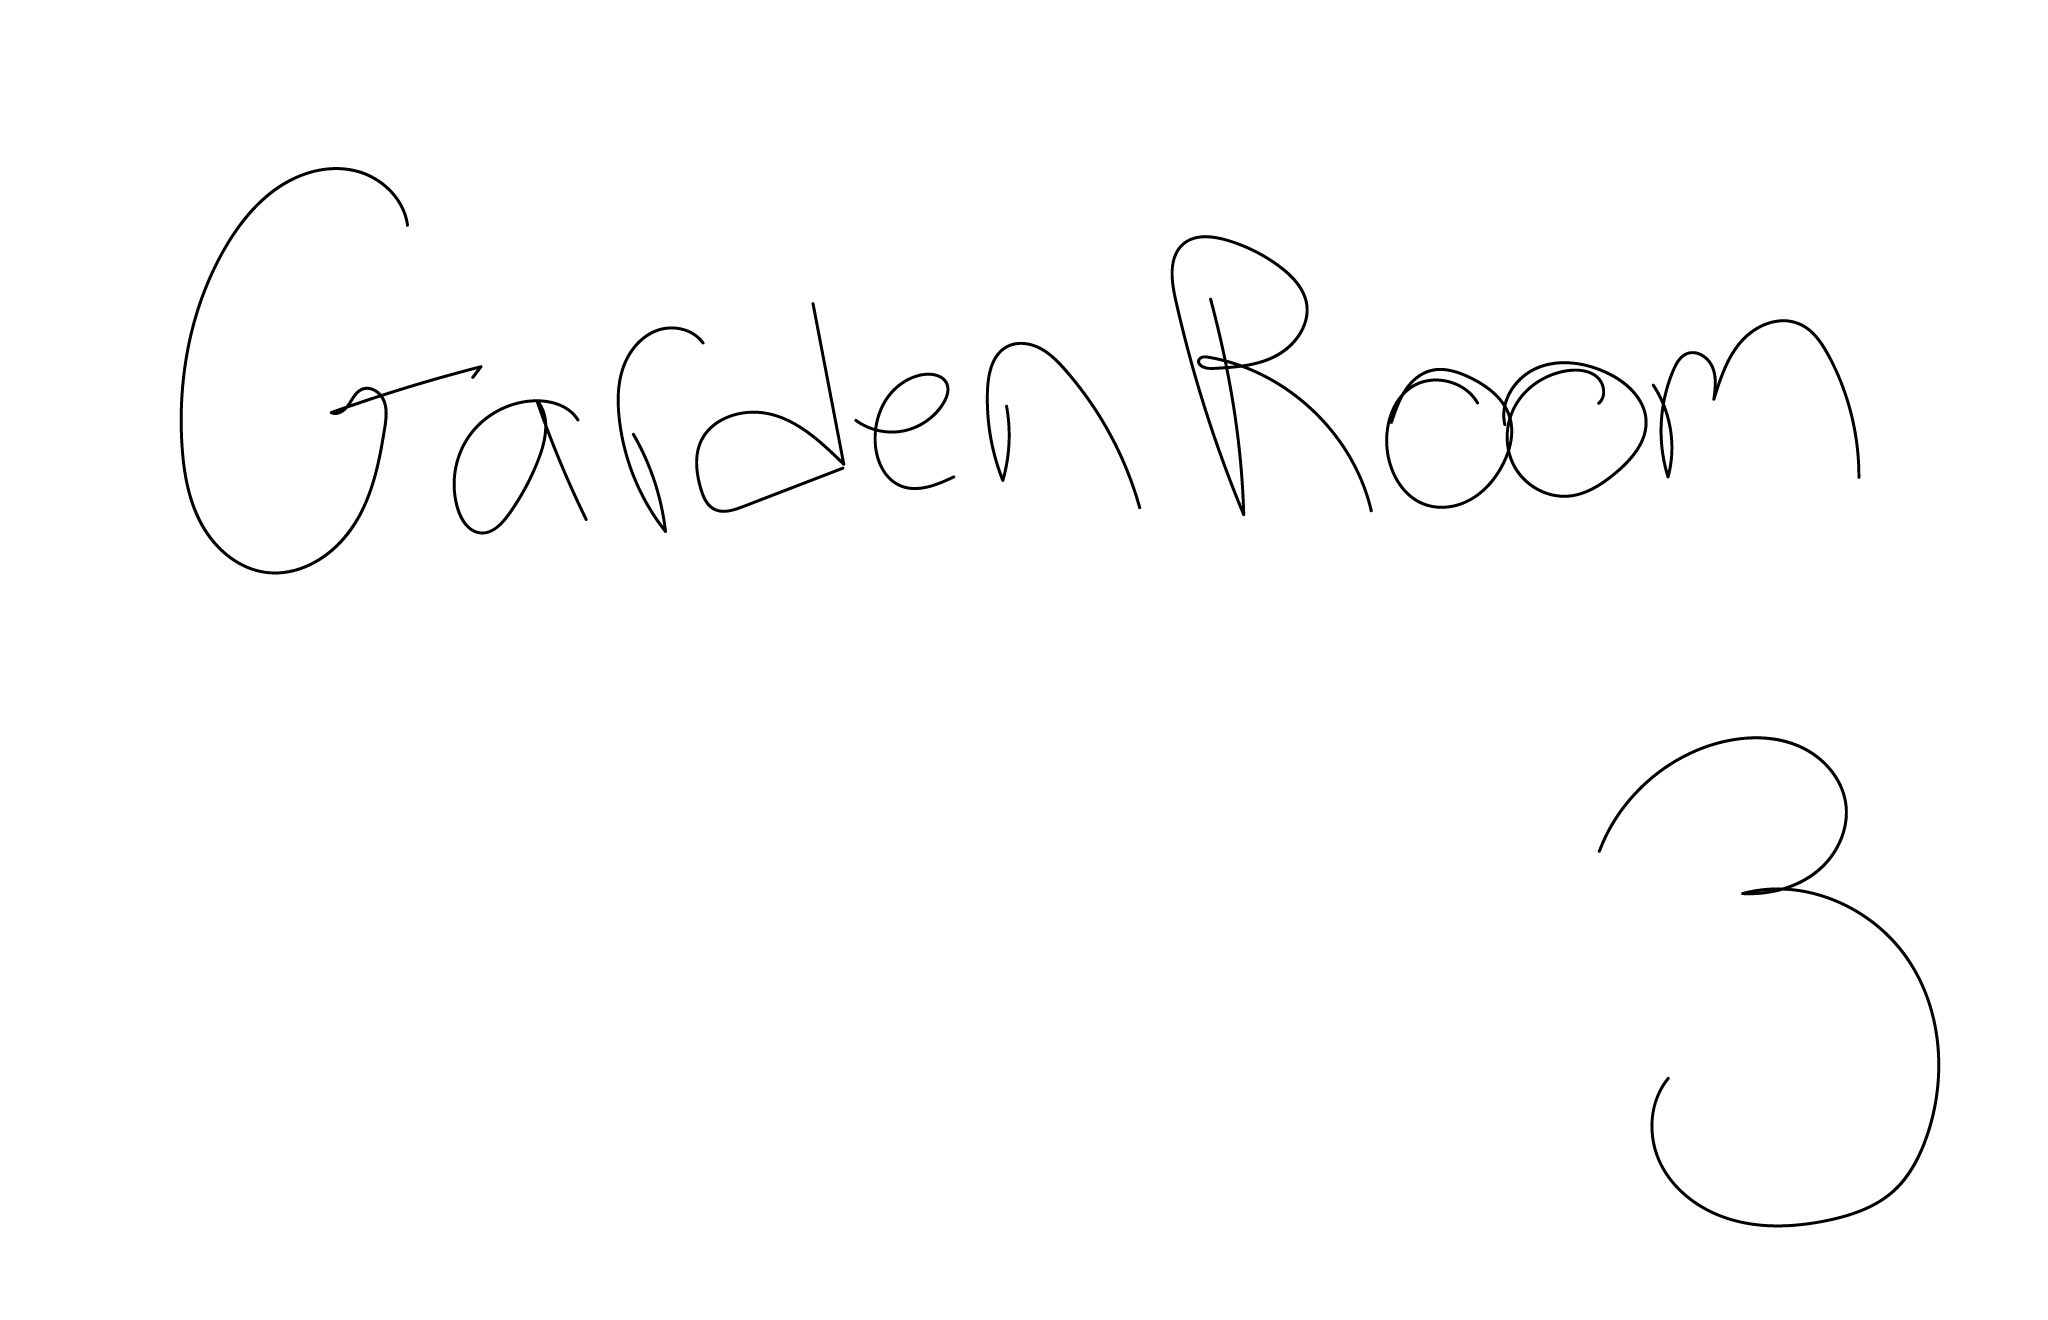 Garden Room
3